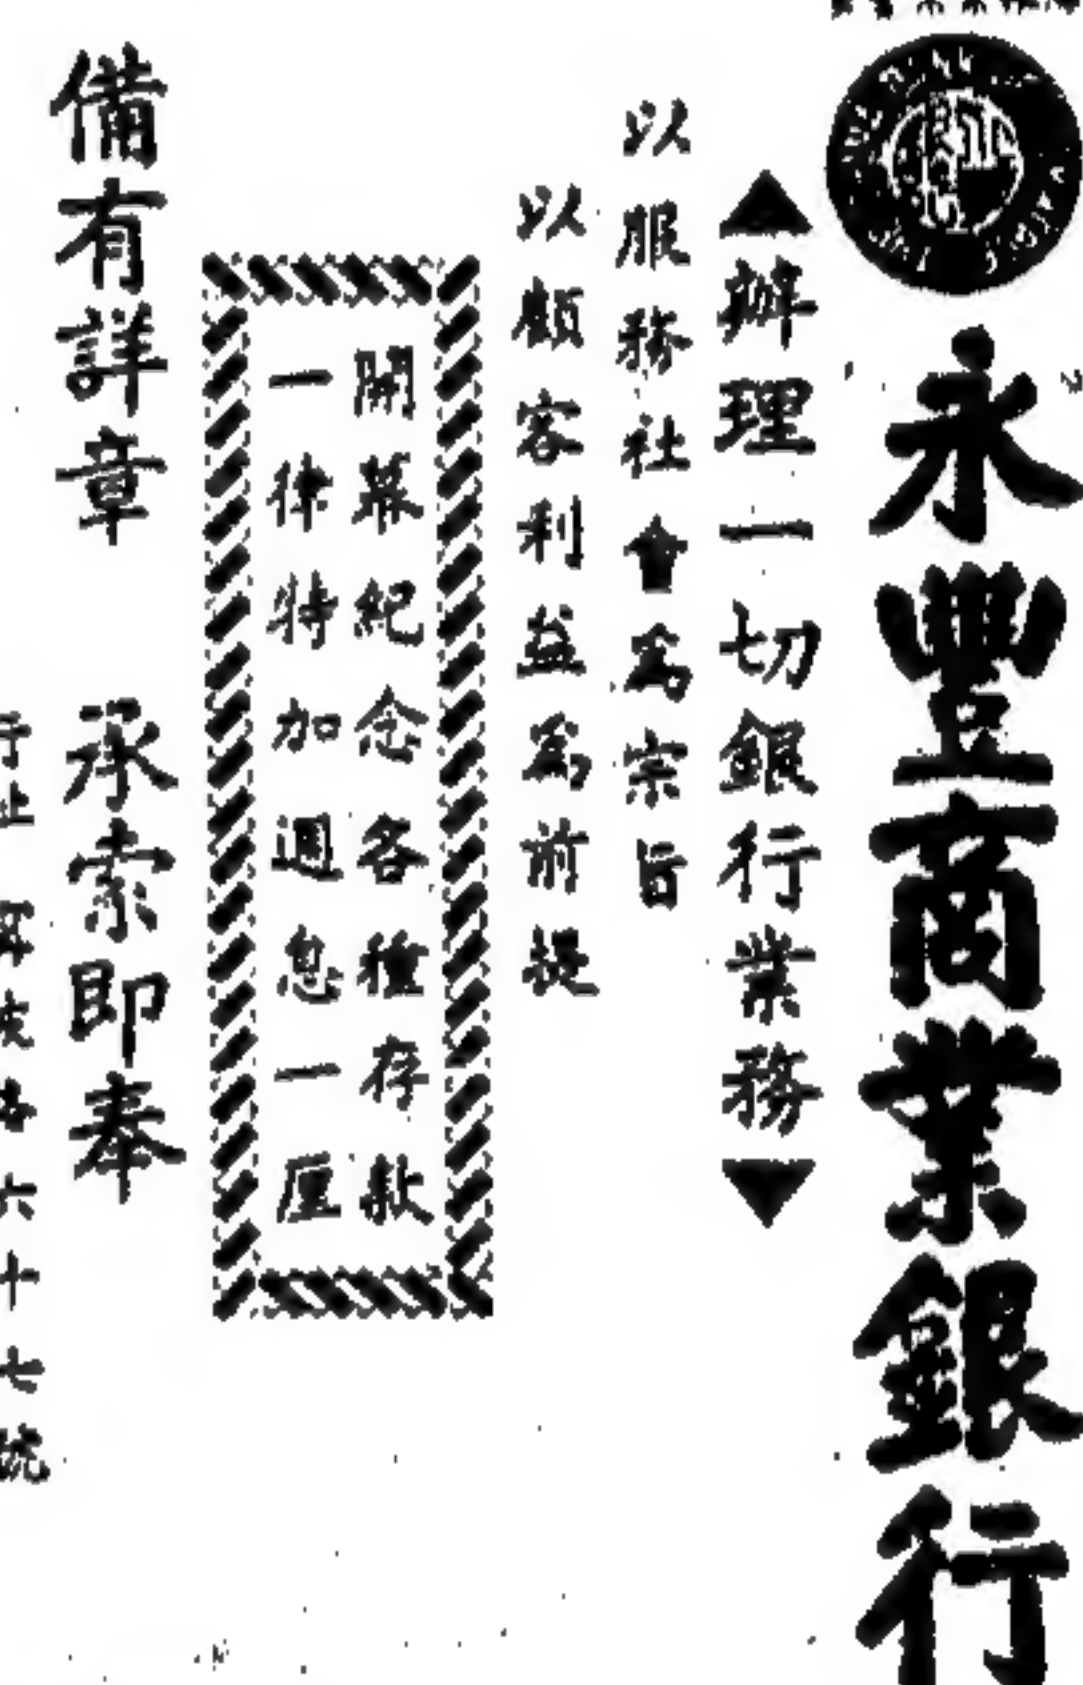 永豐商業銀行
▲辦理一切銀行業務▼
以服務社會爲宗旨
以顧客利益爲前提
開幕紀念各種存款
一律特加週息一厘
備有詳章 承索即奉
行址 路六十七號